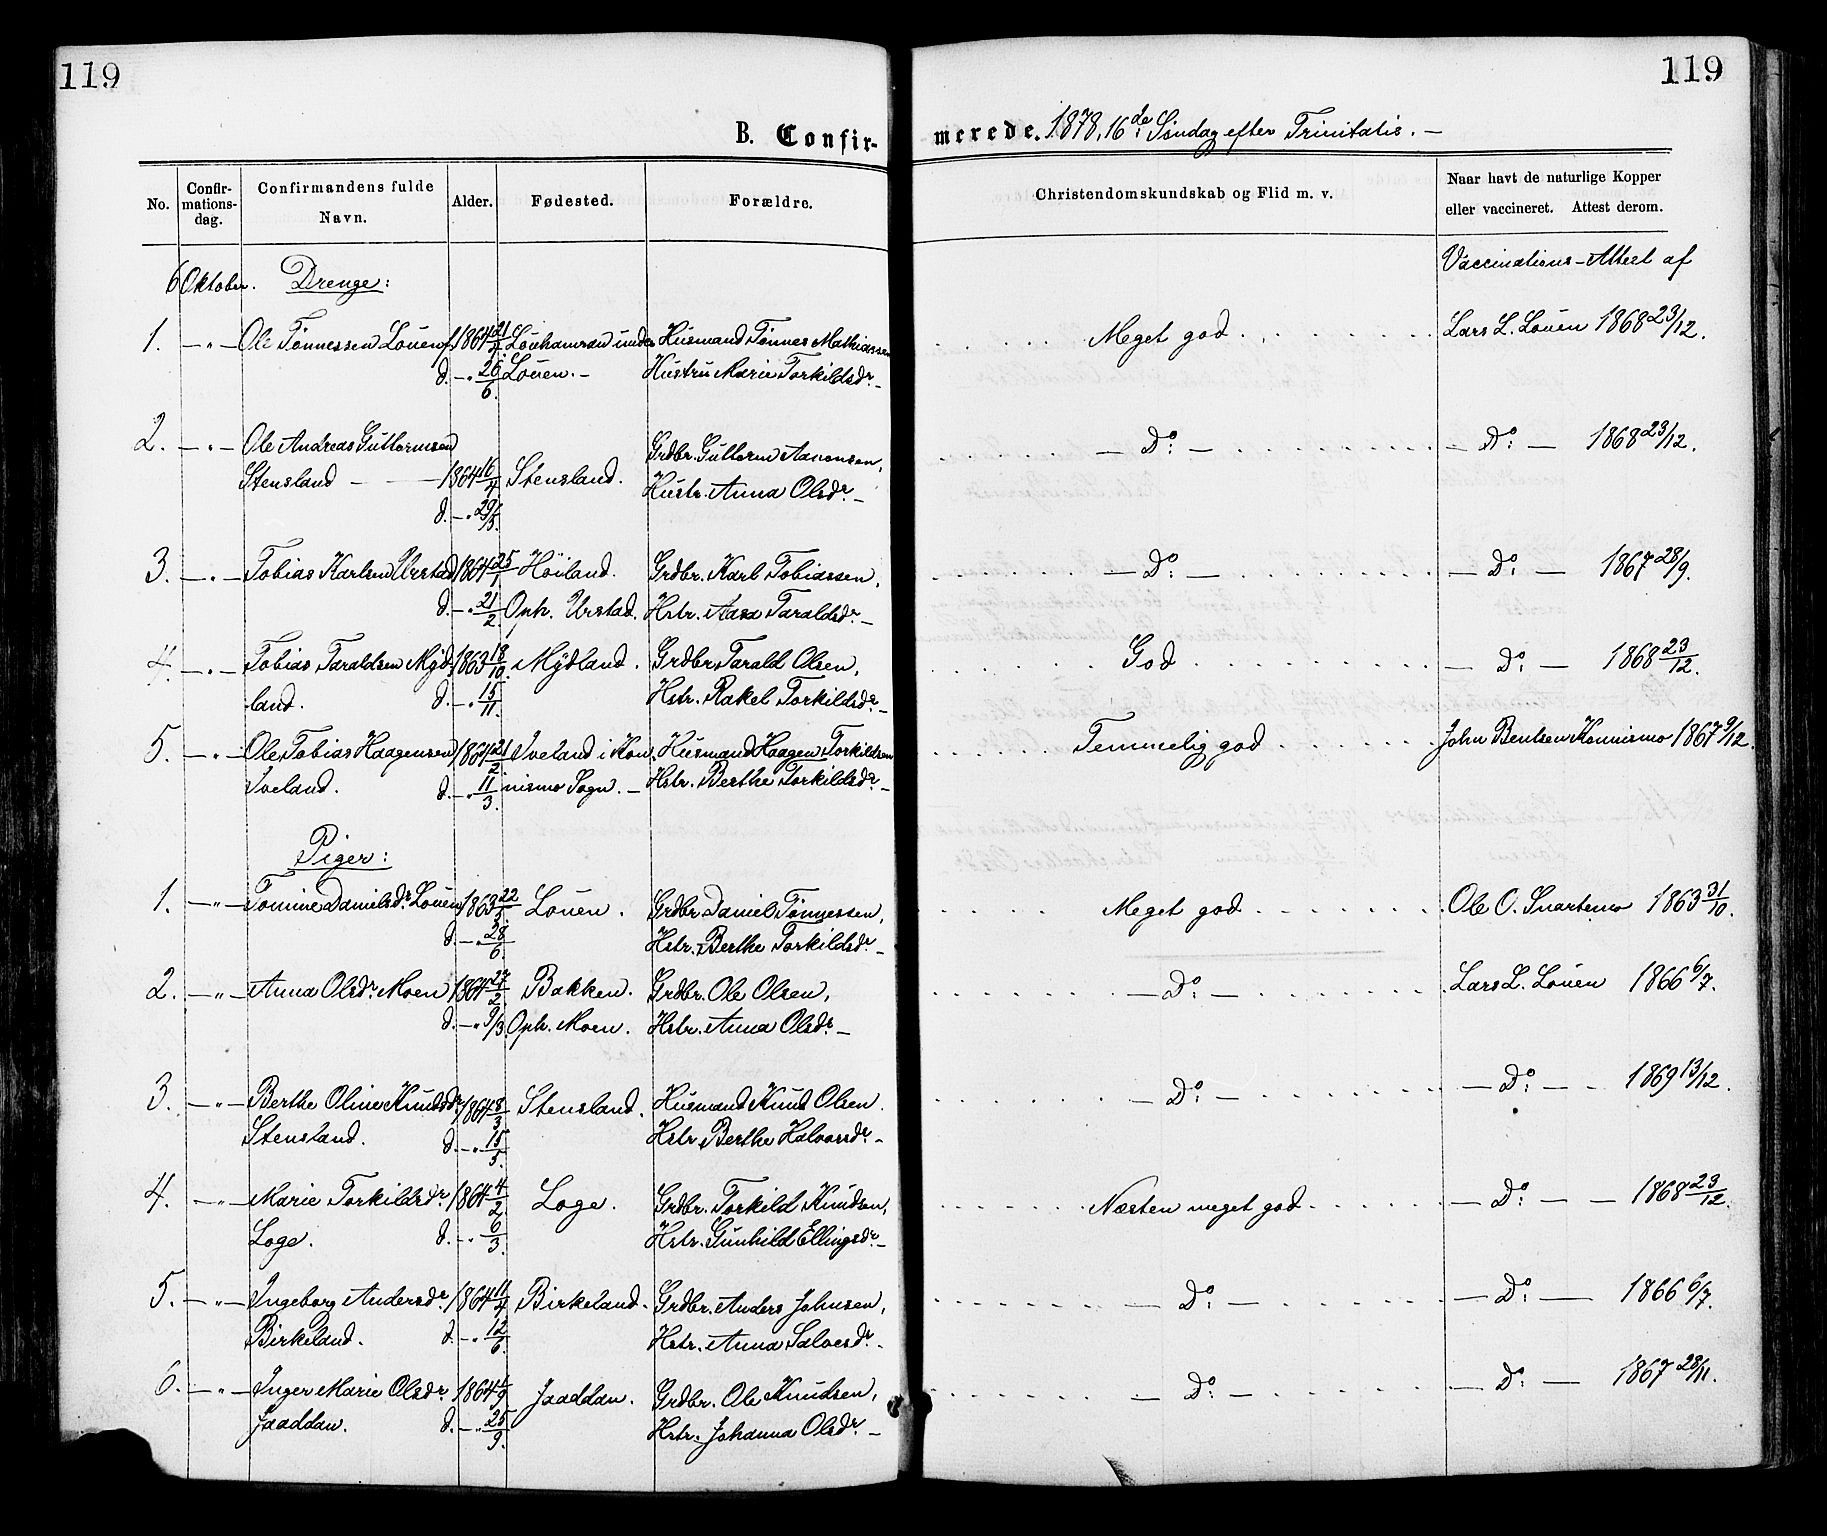 119
119
B. Confir- merede. 1878, 16de Søndag efter Trinitatis. —
No.
Confir-mations-dag.
Confirmandens fulde Navn.
Alder.
Fødested.
Forældre.
Christendomskundskab og Flid m. v.
Naar havt de naturlige Kopper
eller vaccineret. Attest derom.
Vaccinations-Attest af
6 Oktober. Drenge:
1. —„— Ole Tønnessen Louen f. 1864 21/ Louhamran under Husmand Tønnes Mathiassen . . . Meget god . . . Lars L. Louen 1868 23/12.
d. —„ 26/6 Louen. — Hustru Marie Torkildsdr. —
2. —„— Ole Andreas Guttormsen Grdbr. Guttorm Aanensen, . . . — Do: — . . . — Do: — 1868 23/12.
Stensland — — 1864 16/4 Stensland. Hustr. Anna Olsdr. —
d. —„ 29/5.
3. —„— Tobias Karlsen Urstad 1864 25/1 Høiland. Grdbr. Karl Tobiassen, . . . — Do: — . . . — Do: — 1867 28/9.
d. —„ 21/2 Oph. Urstad. Hstr. Aasa Taraldsdr. —
4. —„— Tobias Taraldsen Myd- 1863 18/10. Mydland. Grdbr. Tarald Olsen, . . . God . . . — Do: — 1868 23/12.
land. d. —„ 15/11. Hstr. Rakel Torkildsdr. —
5. —„— Ole Tobias Haagensen 1864 21/2. Iveland i Kon- Husmand Haagen Torkildsen . . . Temmelig god . . . John Bentsen Konnismo 1867 9/12.
Iveland. d. —„ 11/3 nismo Sogn. — Hstr. Berthe Torkildsdr. —
Piger:
1. —„— Tomine Danielsdr. Louen 1863 22/5 Louen. Grdbr. Daniel Tønnessen, . . . Meget god . . . Ole O. Snartemo 1863 31/10.
d. —„ 28/6 Hstr. Berthe Torkildsdr. —
2. —„— Anna Olsdr. Moen 1864 27/2. Bakken. Grdbr. Ole Olsen, . . . — Do: — . . . Lars L. Louen 1866 6/7.
d. —„ 9/3. Oph. Moen. Hstr. Anna Olsdr. —
3. —„— Berthe Oline Knudsdr. 1864 8/3 Stensland. Husmand Knud Olsen. . . . — Do: — . . . — Do: — 1869 13/12.
Stensland. d. —„ 15/5. Hstr. Berthe Halvorsdr. —
4. —„— Marie Torkildsdr. 1864 4/2 Loge. Grdbr. Torkild Knudsen, . . . Næsten meget god . . . — Do: — 1868 23/12.
Loge. d. —„ 6/3. Hstr. Gunhild Ellingsdr. —
5. —„— Ingeborg Andersdr. 1864 11/4 Birkeland. Grdbr. Anders Johnsen, . . . — Do: — . . . — Do: — 1866 6/7.
Birkeland. d. —„ 12/6. Hstr. Anna Salvesdr. —
6. —„— Inger Marie Olsdr. 1864 1/9 Jaaddan. Grdbr. Ole Knudsen, . . . — Do: — . . . — Do: — 1867 28/11.
Jaaddan. d. —„ 25/9. Hstr. Johanna Olsdr. —